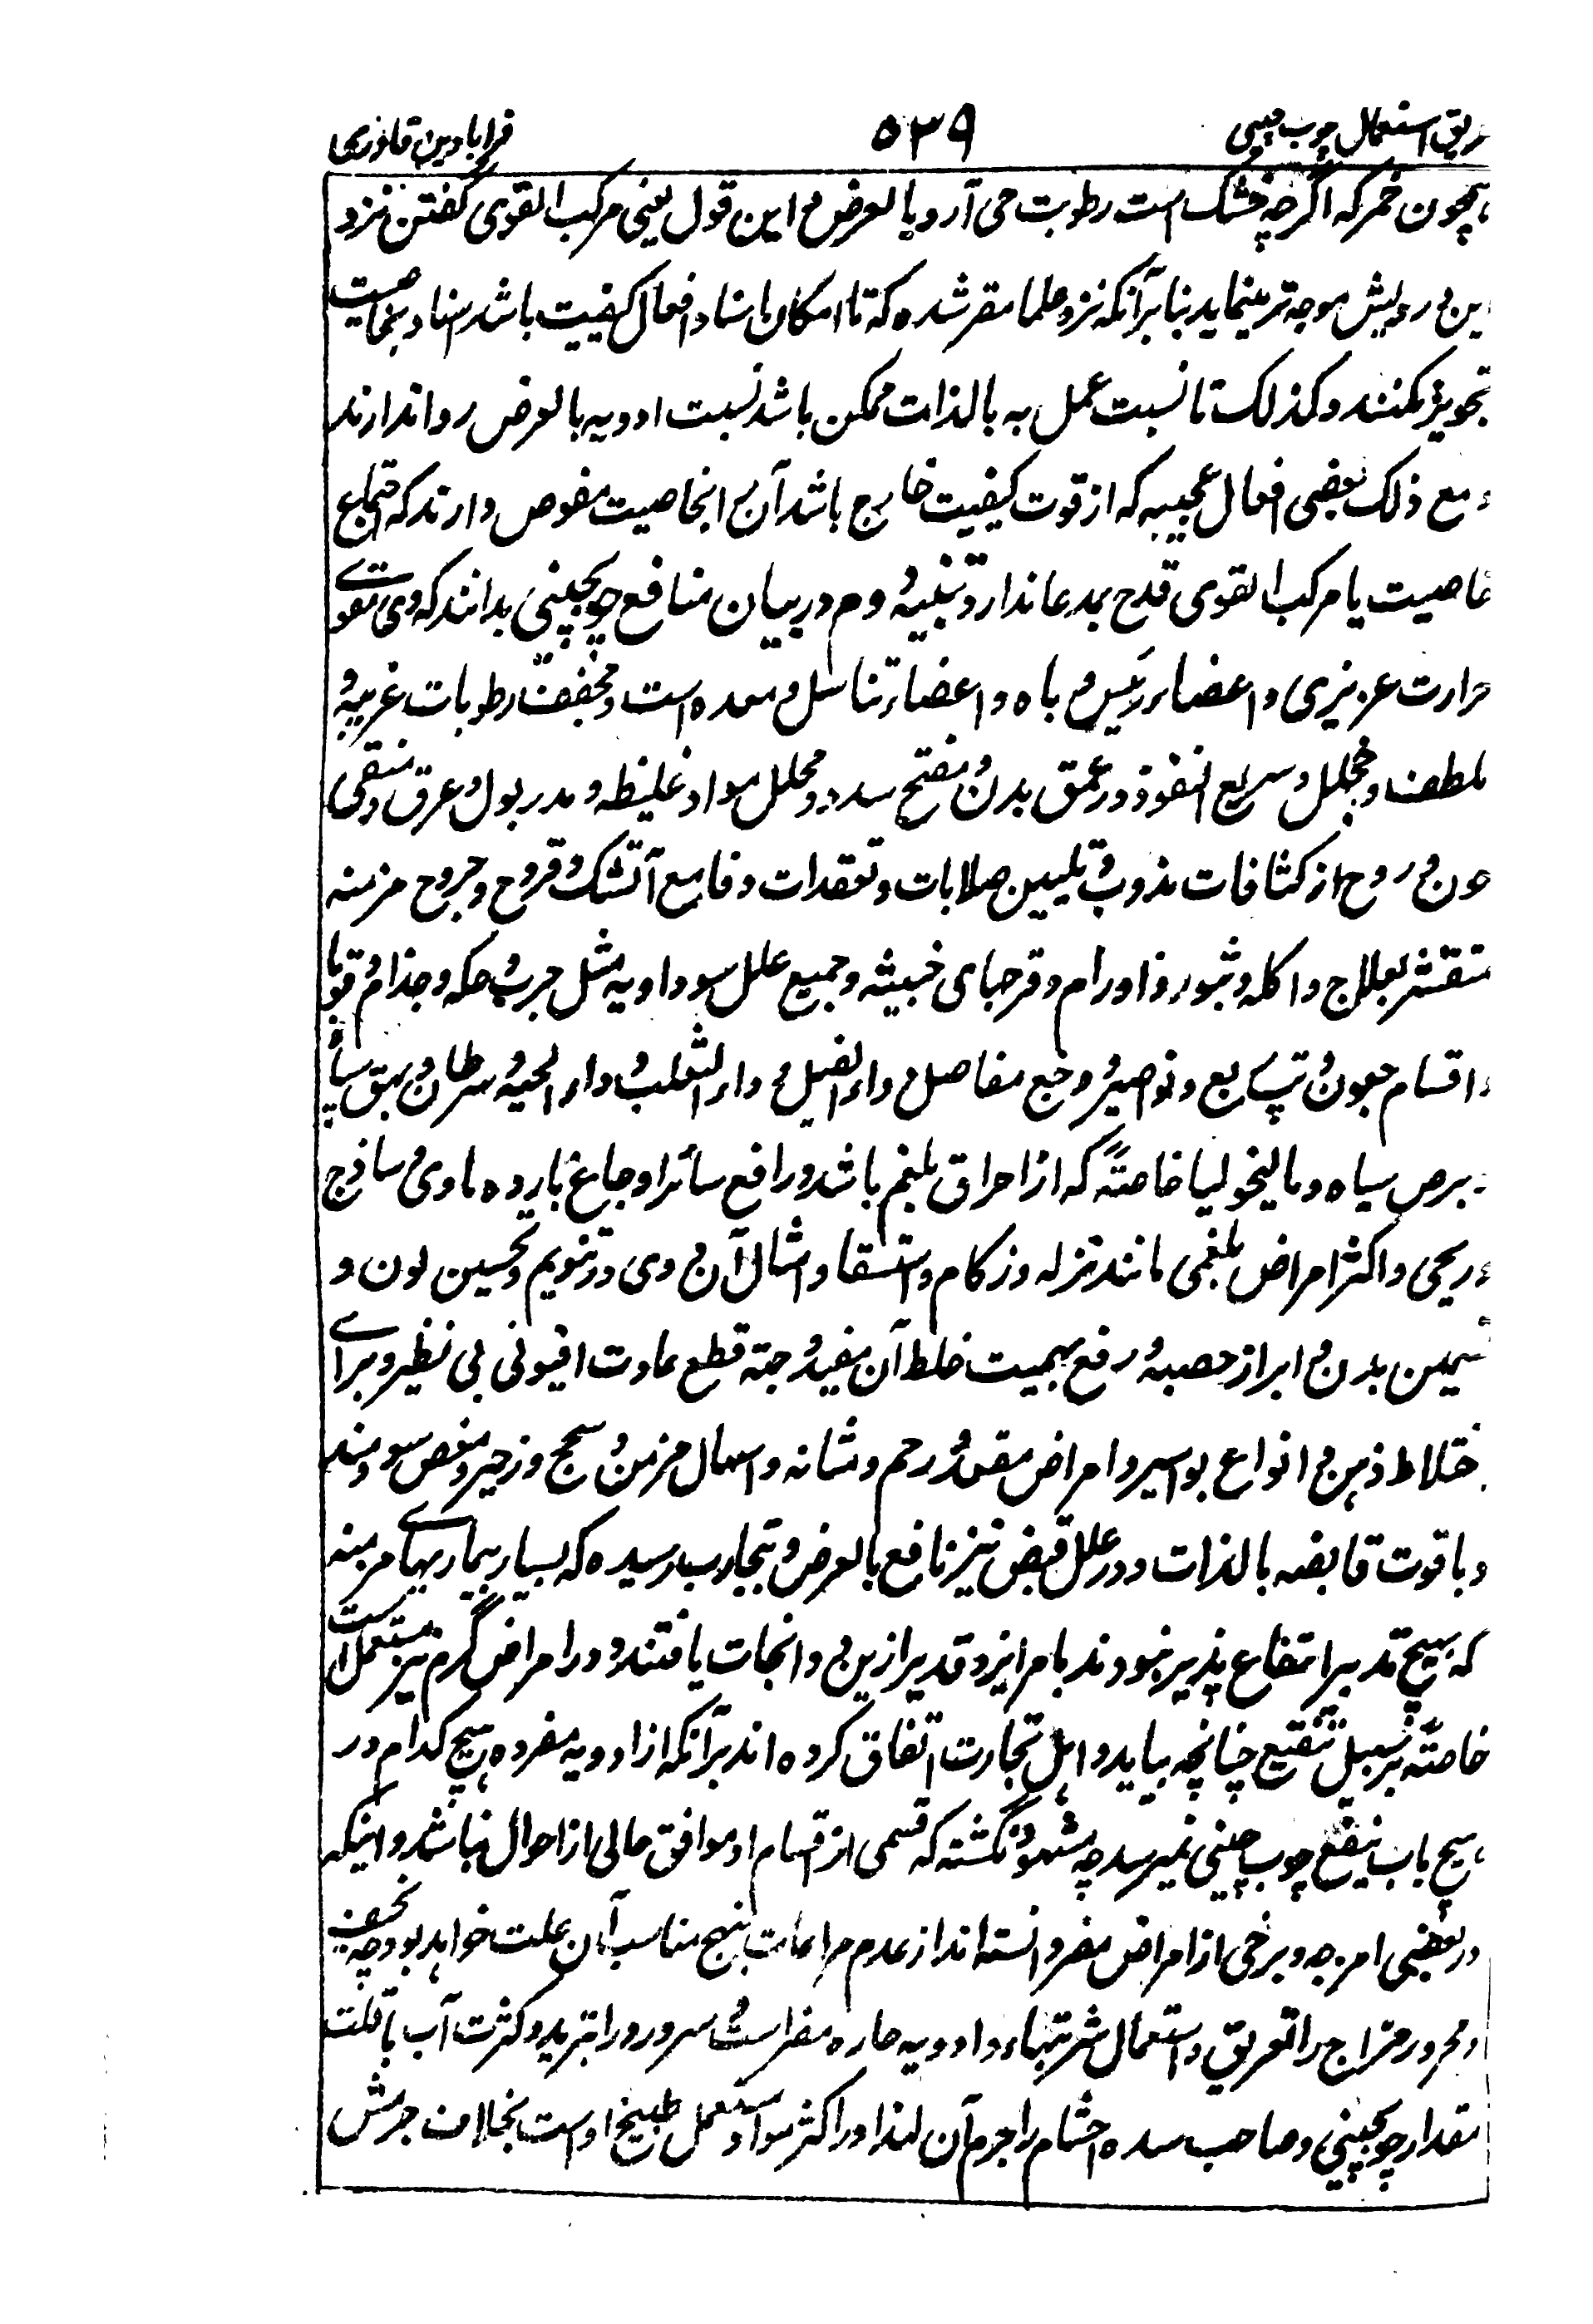 ریق استعمال چوب چینی ۵۳۹ قرابادین قادری
ہمچون خمر که اگرچه خشک است رطوبت می آرد بالعرض و این قول یعنی مرکب القوی گفتن نزد
این درویش موجه تر مینماید بنابر آنکه نزد علما مقرر شده که تا امکان اسناد افعال کیفیت باشد اسناد بخاصیت
تجویز نکنند و کذلک تا نسبت عمل به بالذات ممکن باشد نسبت ادویه بالعرض روا ندارند
و مع ذلک بعضی افعال عجیبه که از قوت کیفیت خارج باشد آن را بخاصیت مفوض دارند که اجتماع
خاصیت یا مرکب القوی قدح بمدعا ندارد تنبیه دوم در بیان منافع چوبچینی بدانند که وی مقوے
حرارت عزیزی و اعضاء رئیس و باه و اعضاء تناسل و معده است و مجفف رطوبات غریبه و
ملطف و محلل و سریع النفوذ در عمق بدن و مفتح سدد و محلل مواد غلیظه و مدر بول و عرق و منقی
خون و روح از کثافات مذوب و تلیین صلابات و تعقدات و قامع آتشک و قروح و جروح مزمنه
متقشر بعلاج و اکله و ثبور و اورام و قرحهای خبیثه و جمیع علل سوداویه مثل جرب و حکه و جذام و قوبا
و اقسام جنون و تپ ربع و نواصیر و وجع مفاصل و داء الفیل و داء الثعلب و داء الحیه و سرطان و بهق سیاه
و برص سیاه و مالیخولیا خاصتهً که از احراق بلغم باشد و رافع سائر اوجاع بارده مادی و ساذج
و ریحی و اکثر امراض بلغمی مانند نزله و زکام و استسقا و امثال آن و وی در تنویم و تحسین لون و
تسمین بدن و ابراز حصبه و رفع سمیت خلط آن مفید و جهة قطع عادت افیونی بی نظیر و براے
اختلاط ذهن و انواع بواسیر و امراض مقعد و رحم و مثانه و اسهال مزمن و سحج و زحیر و مغص سودمند
و با قوت قابضه بالذات و در علل قبض نیز نافع بالعرض و بتجارب رسیده که بسیار بیماریهاے مزمنه
که بهیچ تدبیر انتفاع پذیر نبودند بامر ایزد قدیر ازین دوا نجات یافتند و در امراض گرم نیز مستعمل است
خاصته بر سبیل تنقیع چنانچه بیاید و اهل تجارت اتفاق کرده اند برآنکه از ادویه مفرده هیچ کدام در
هیچ باب بنفع چوب چینی نمیرسد چه مشهود نگشته که قسمی از اقسام او موافق حالی از احوال نباشد و اینکه
در بعضی امزجه و برخی از امراض مضر دانسته اند از عدم مراعات نهج مناسب آن علت خواهد بود چه نحیف
و محرور مزاج را تعریق و استعمال شربتهاء و ادویه حاره مضر است و مرور را تبرید و کثرت آب با قلت
مقدار چوبچینی و صاحب سده احشام را جرم آن لهذا در اکثر مواد مستعمل طبیخ اوست بخلاف جرمش